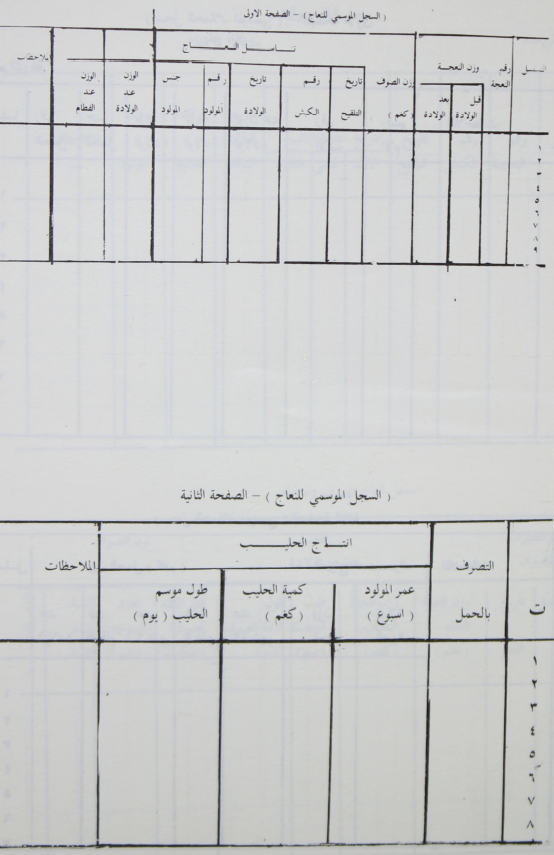 ( السجل الموسمي للنعاج ) – الصفحة الاولى
التسلسل رقم النعجة وزن النعجة وزن الصوف ( كغم ) تناسل النعاج ملاحظات
قبل الولادة بعد الولادة تاريخ التلقيح رقم الكبش تاريخ الولادة رقم المولود جنس المولود الوزن عند الولادة الوزن عند الفطام
١
٢
٣
٤
٥
٦
٧
٨
٩
( السجل الموسمي للنعاج ) – الصفحة الثانية
ت التصرف بالحمل انتاج الحليب الملاحظات
عمر المولود كمية الحليب طول موسم
( اسبوع ) ( كغم ) الحليب ( يوم )
١
٢
٣
٤
٥
٦
٧
٨